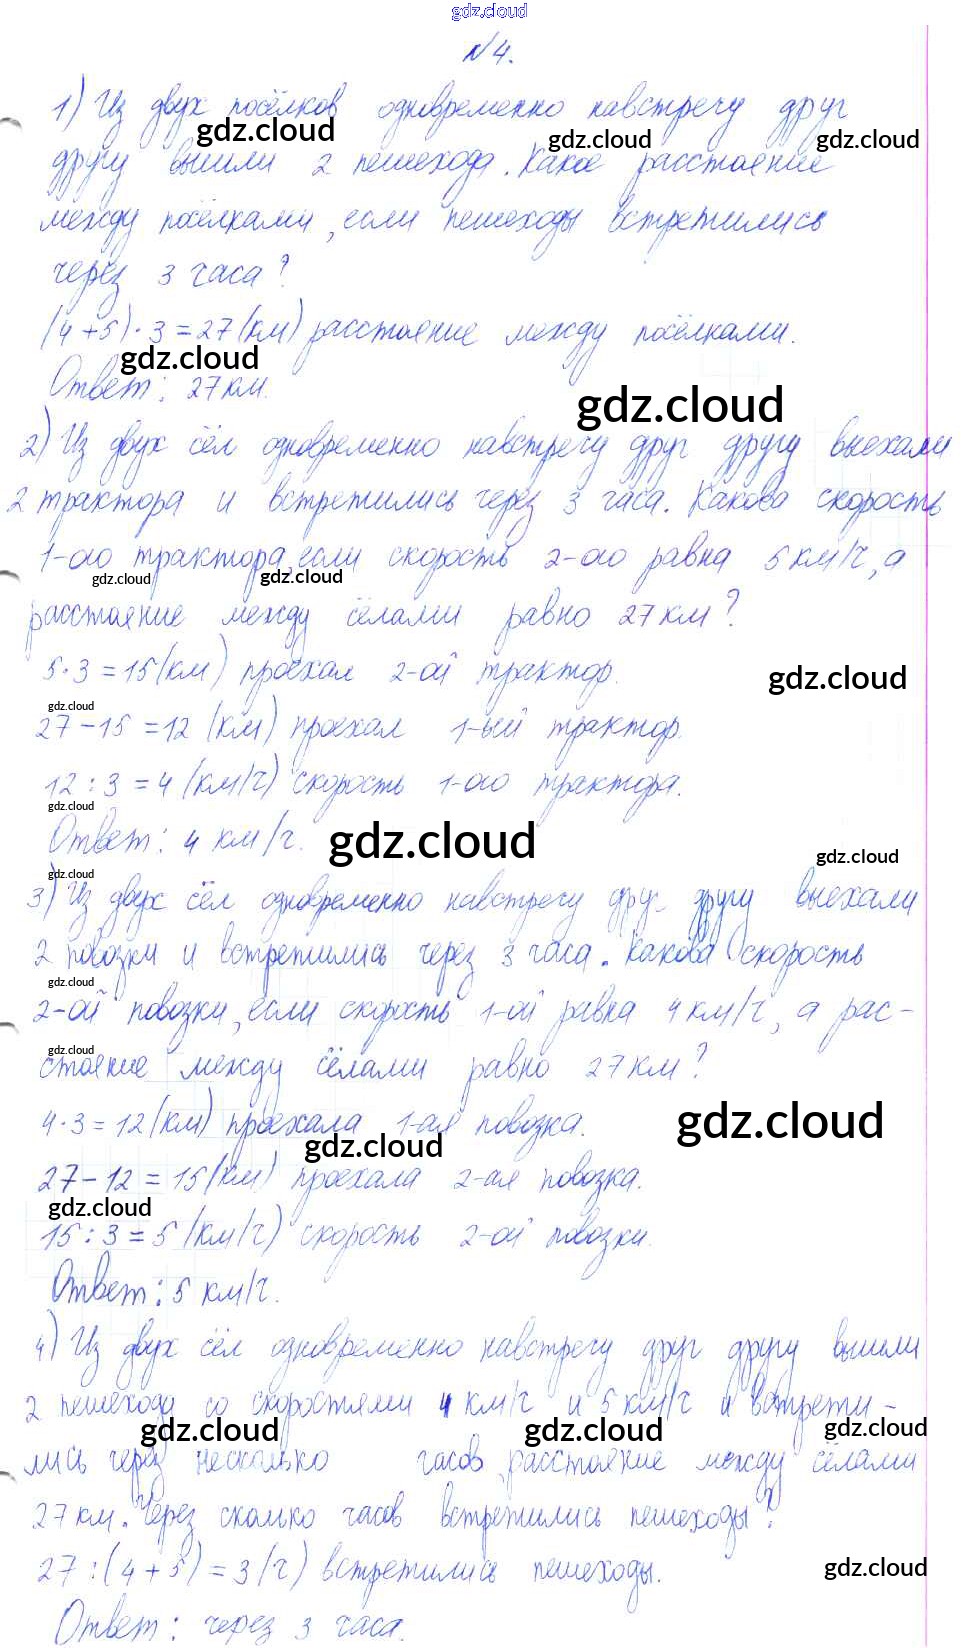 gdz.cloud
№4.
1) Из двух посёлков одновременно навстречу друг
gdz.cloud gdz.cloud gdz.cloud
другу вышли 2 пешехода. Какое расстояние
между посёлками, если пешеходы встретились
через 3 часа?
(4+5)·3=27(км) расстояние между посёлками.
gdz.cloud
Ответ: 27 км.
gdz.cloud
2) Из двух сёл одновременно навстречу друг другу выехали
2 трактора и встретились через 3 часа. Какова скорость
1-ого трактора, если скорость 2-ого равна 5 км/ч, а
gdz.cloud gdz.cloud
расстояние между сёлами равно 27 км?
5·3=15(км) проехал 2-ой трактор.
gdz.cloud
gdz.cloud
27-15=12 (км) проехал 1-ый трактор.
12:3=4 (км/ч) скорость 1-ого трактора.
gdz.cloud
Ответ: 4 км/ч.
gdz.cloud
gdz.cloud
gdz.cloud
3) Из двух сёл одновременно навстречу друг другу выехали
2 повозки и встретились через 3 часа. Какова скорость
gdz.cloud
2-ой повозки, если скорость 1-ой равна 4 км/ч, а рас-
gdz.cloud
стояние между сёлами равно 27 км?
4·3=12(км) проехала 1-ая повозка.
gdz.cloud
gdz.cloud
27-12=15(км) проехала 2-ая повозка.
gdz.cloud
15:3=5 (км/ч) скорость 2-ой повозки.
Ответ: 5 км/ч.
4) Из двух сёл одновременно навстречу друг другу вышли
2 пешехода со скоростями 4 км/ч и 5 км/ч и встрети-
gdz.cloud gdz.cloud gdz.cloud
лись через несколько часов, расстояние между сёлами
27 км. Через сколько часов встретились пешеходы?
27:(4+5)=3(ч) встретились пешеходы.
gdz.cloud
Ответ: через 3 часа.